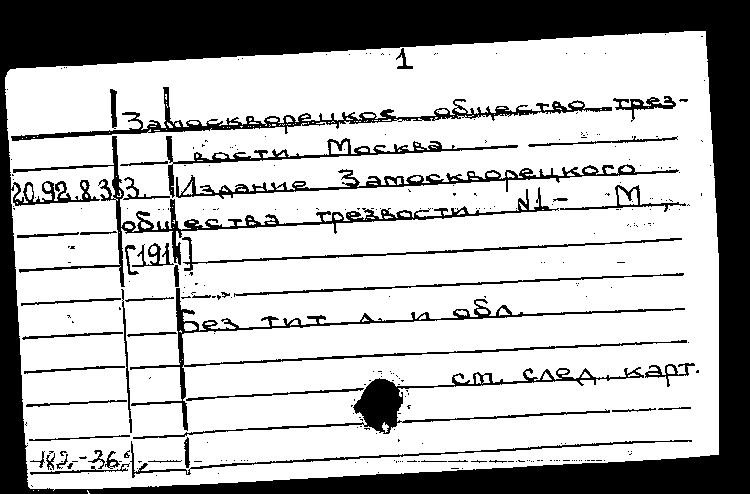 1
Замоскворецкое общество трез-
вости. Москва.
20.92.8.353. Издание Замоскворецкого
общества трезвости. N1- М.,
[1911]
Без тит. л. и обл.
см. след. карт.